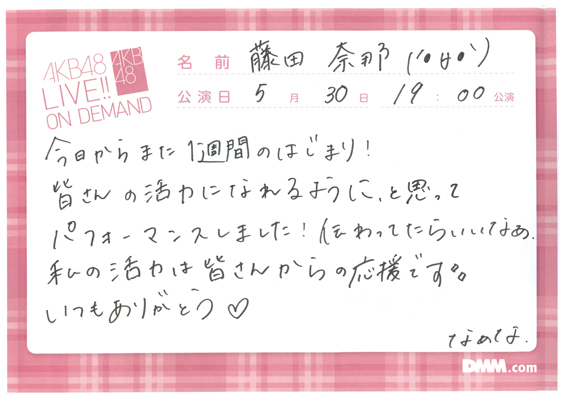 AKB48
LIVE!!
ON DEMAND
AKB
48
名前 藤田 奈那
公演日 5月 30日 19:00公演
今日からまた1週間のはじまり!
皆さんの活力になれるように、と思って
パフォーマンスしました!伝わってたらいいなぁ.
私の活力は皆さんからの応援です。
いつもありがとう♡
なぁな.
DMM.com